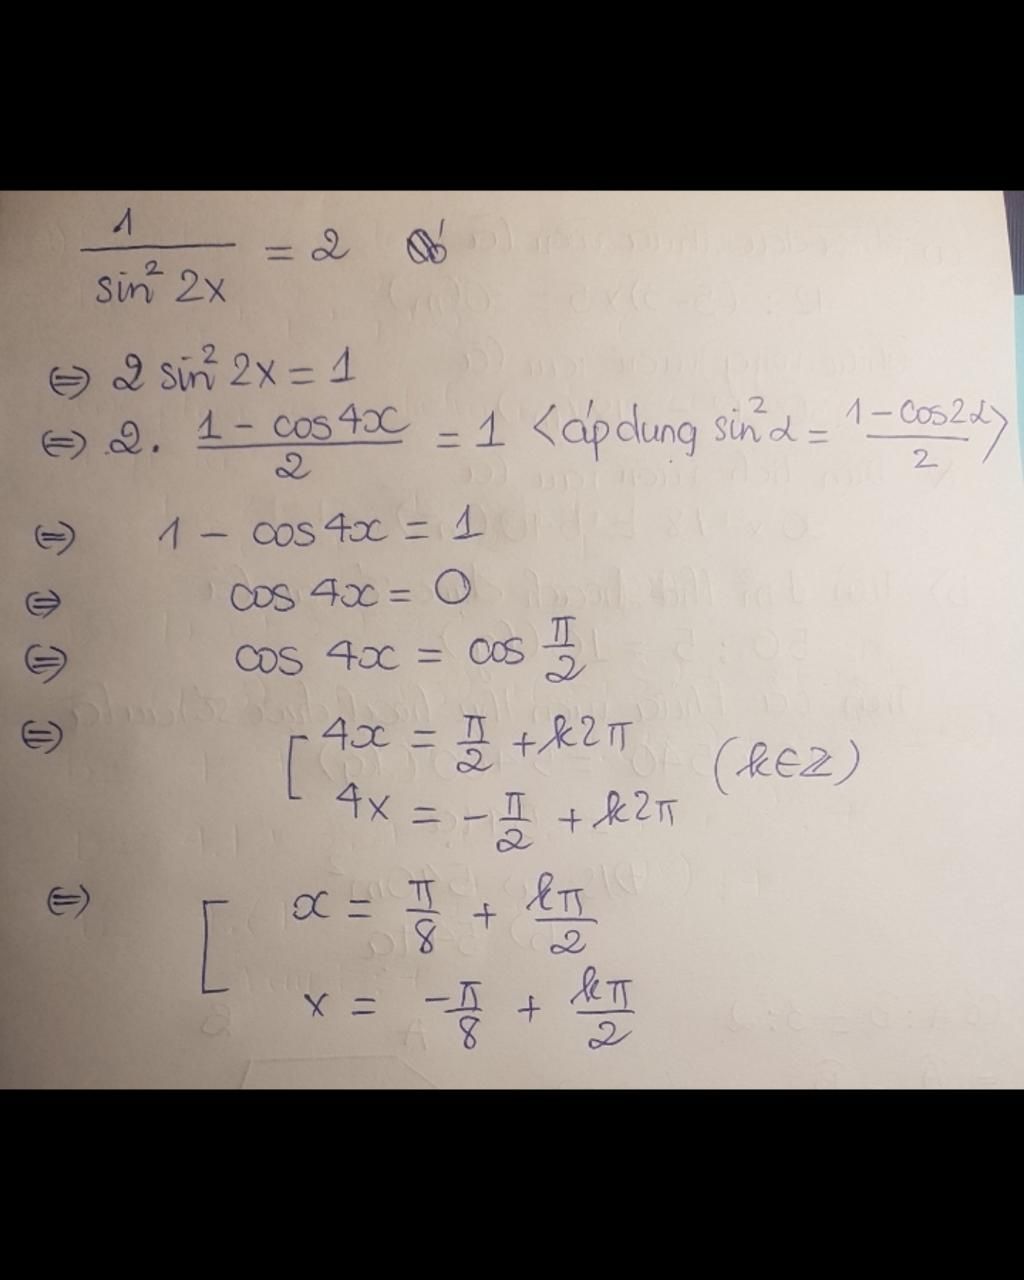 1/sin² 2x = 2
⇔ 2 sin² 2x = 1
⇔ 2. (1 - cos 4x)/2 = 1 <áp dung sin² α = (1 - cos2α)/2>
⇔ 1 - cos 4x = 1
⇔ cos 4x = 0
⇔ cos 4x = cos π/2
⇔ [ 4x = π/2 + k2π
4x = -π/2 + k2π (k∈Z)
⇔ [ x = π/8 + kπ/2
x = -π/8 + kπ/2